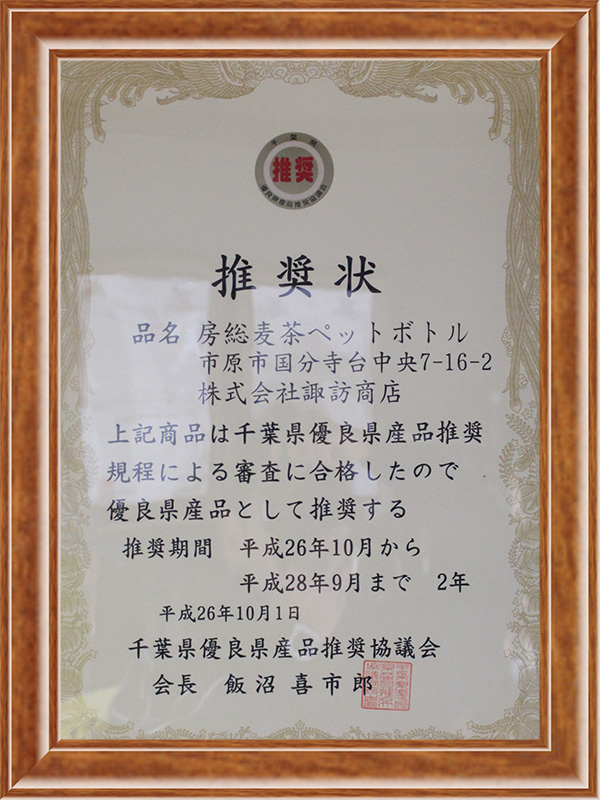 千葉県
推奨
優良県産品推奨協議会
推奨状
品名 房総麦茶ペットボトル
市原市国分寺台中央7-16-2
株式会社諏訪商店
上記商品は千葉県優良県産品推奨
規程による審査に合格したので
優良県産品として推奨する
推奨期間 平成26年10月から
平成28年9月まで 2年
平成26年10月1日
千葉県優良県産品推奨協議会
会長 飯沼 喜市郎